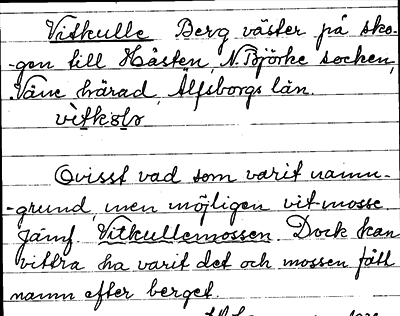 Vitkulle Berg väster på sko-
-gen till Håsten, N. Björke socken,
Väne härad, Älfsborgs län.
Ovisst vad som varit namn-
-grund, men möjligen vit-mosse
Jämf. Vitkullemossen. Dock kan
vittra ha varit det och mossen fått
namn efter berget.